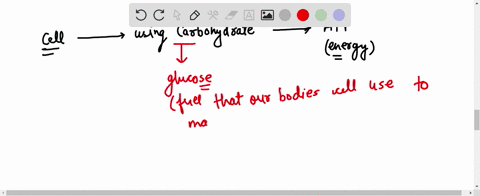 Cell → using Carbohydrate →
(energy)
glucose
(fuel that our bodies will use to
ma